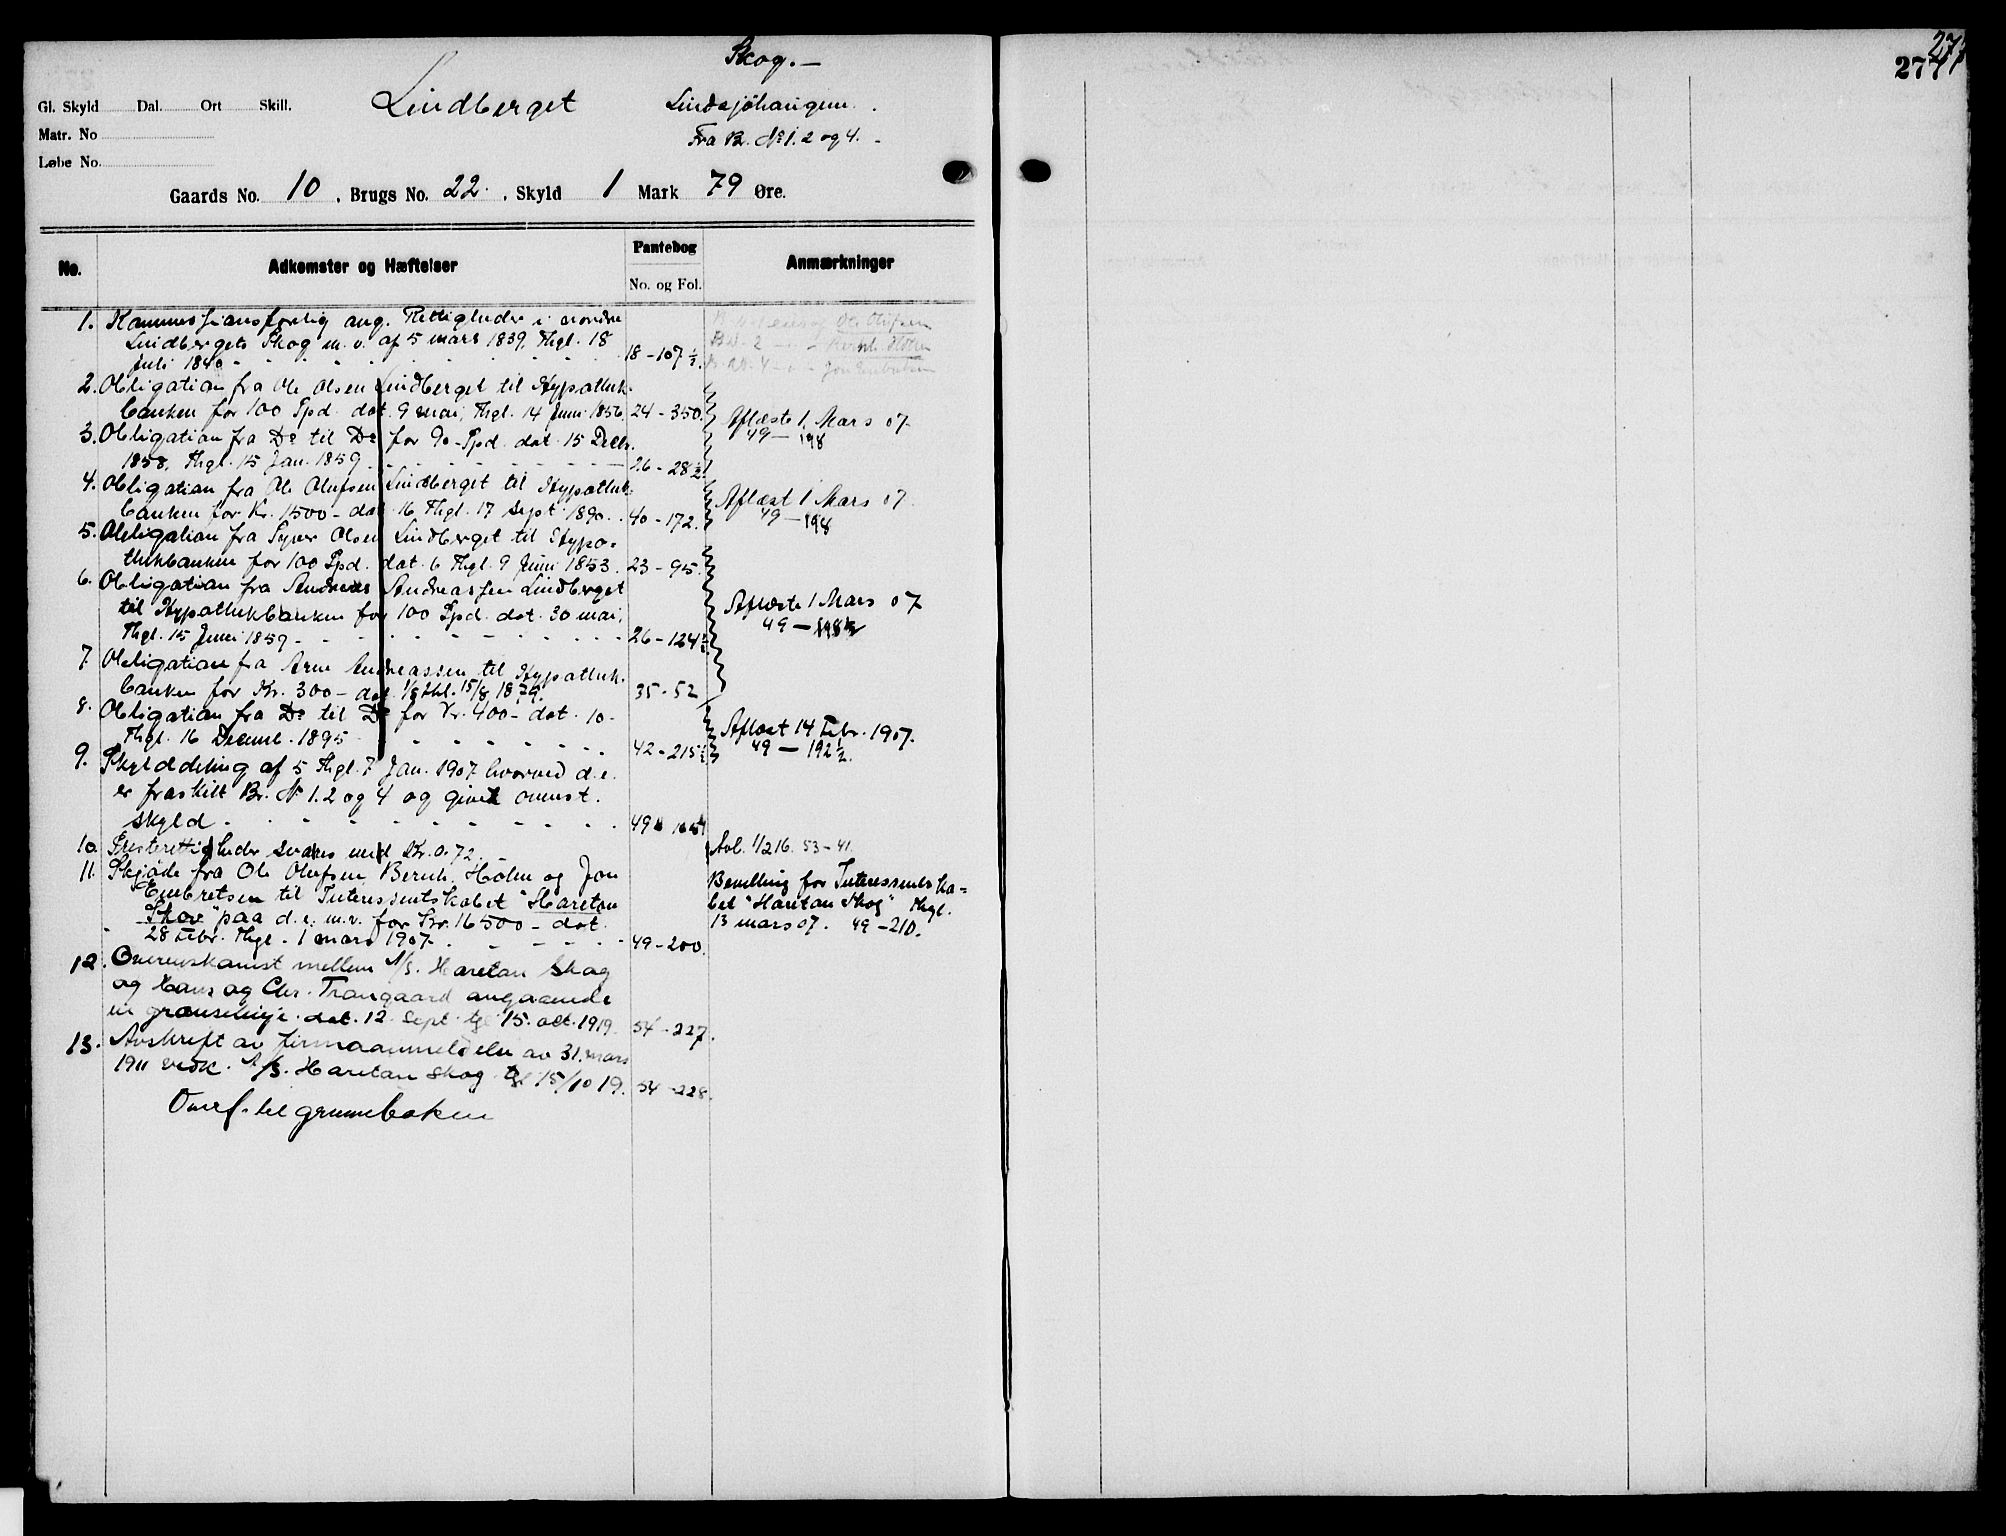 Skog. —
277
277
Gl. Skyld Dal. Ort Skill. Lindberget Lindsjöhaugen.
Matr. No Fra Br. No 1. 2 og 4. -
Løbe No.
Gaards No. 10, Brugs No. 22, Skyld 1 Mark 79 Øre.
No. Adkomster og Hæftelser Pantebog No. og Fol. Anmærkninger
1. Kommissionsforlig ang. Rettigheder i nordre
Lindbergets Skog m. v. af 5 mars 1839, Thgl. 18
Juli 1840 - - - 18-107 ½.
2. Obligation fra Ole Olsen Lindberget til Hypothek-
banken for 100 Spd. dat. 9 mai, Thgl. 14 Juni 1856 24-350. Aflæste 1 Mars 07.
3. Obligation fra Do til Do for 90 Spd. dat. 15 Decbr. 49-198
1858, Thgl. 15 Jan. 1859 - - - 26-28½
4. Obligation fra Ole Olufsen Lindberget til Hypothek- Aflæst 1 Mars 07.
banken for Kr. 1500 - dat. 16 Thgl. 17 Sept 1890. 40-172. 49-198
5. Obligation fra Syver Olsen Lindberget til Hypo-
thekbanken for 100 Spd. dat. 6 Thgl. 9 Juni 1853. 23-95.
6. Obligation fra Andreas Andreassen Lindberget Aflæste 1 Mars 07
til Hypothekbanken for 100 Spd. dat. 30 mai, 49-198½
Thgl. 15 Juni 1859 - - - 26-124½
7. Obligation fra Arne Andreassen til Hypothek-
banken for Kr. 300 - dat. 1/8 thl. 15/8 1879. 35-52
8. Obligation fra Do til Do for Kr. 400 - dat. 10 - Aflæst 14 Febr. 1907.
Thgl. 16 Decemb. 1895 - - - 42-215½ 49-192½.
9. Skylddeling af 5 Thgl. 7 Jan. 1907 hvorved d. e.
er fraskilt Br. No 1. 2 og 4 og givet ovenst.
skyld - - - 49
10. Presterettigheder svares med Kr. 0.72. - Avl. 1/2 16. 53-41.
11. Skjøde fra Ole Olufsen Bernh. Holm og Jon Bevilling for Interessentska=
Embretsen til Interessentskabet "Haretan bet "Haretan Skog" Thgl.
Skov" paa d. e. m. v. for Kr. 16500 - dat. 13 mars 07. 49-210.
28 Febr. Thgl. 1 mars 1907. - - - 49-200.
12. Overenskomst mellem A/S. Haretan Skog
og Hans og Chr. Trangaard angaaende
en grænselinje. dat. 12. Sept. tgl 15. okt. 1919. 54-227.
13. Avskrift av firmaanmeldelse av 31. mars
1911 vedk. A/S. Haretan Skog tgl 15/10 19. 54-228.
Overf. til grunnboken